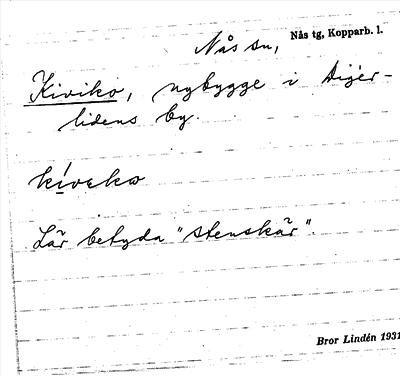 Nås sn, Nås tg, Kopparb. l.
Kiviko, nybygge i Diger-
lidens by.
kívəkω
Lär betyda "stenskär".
Bror Lindén 1931